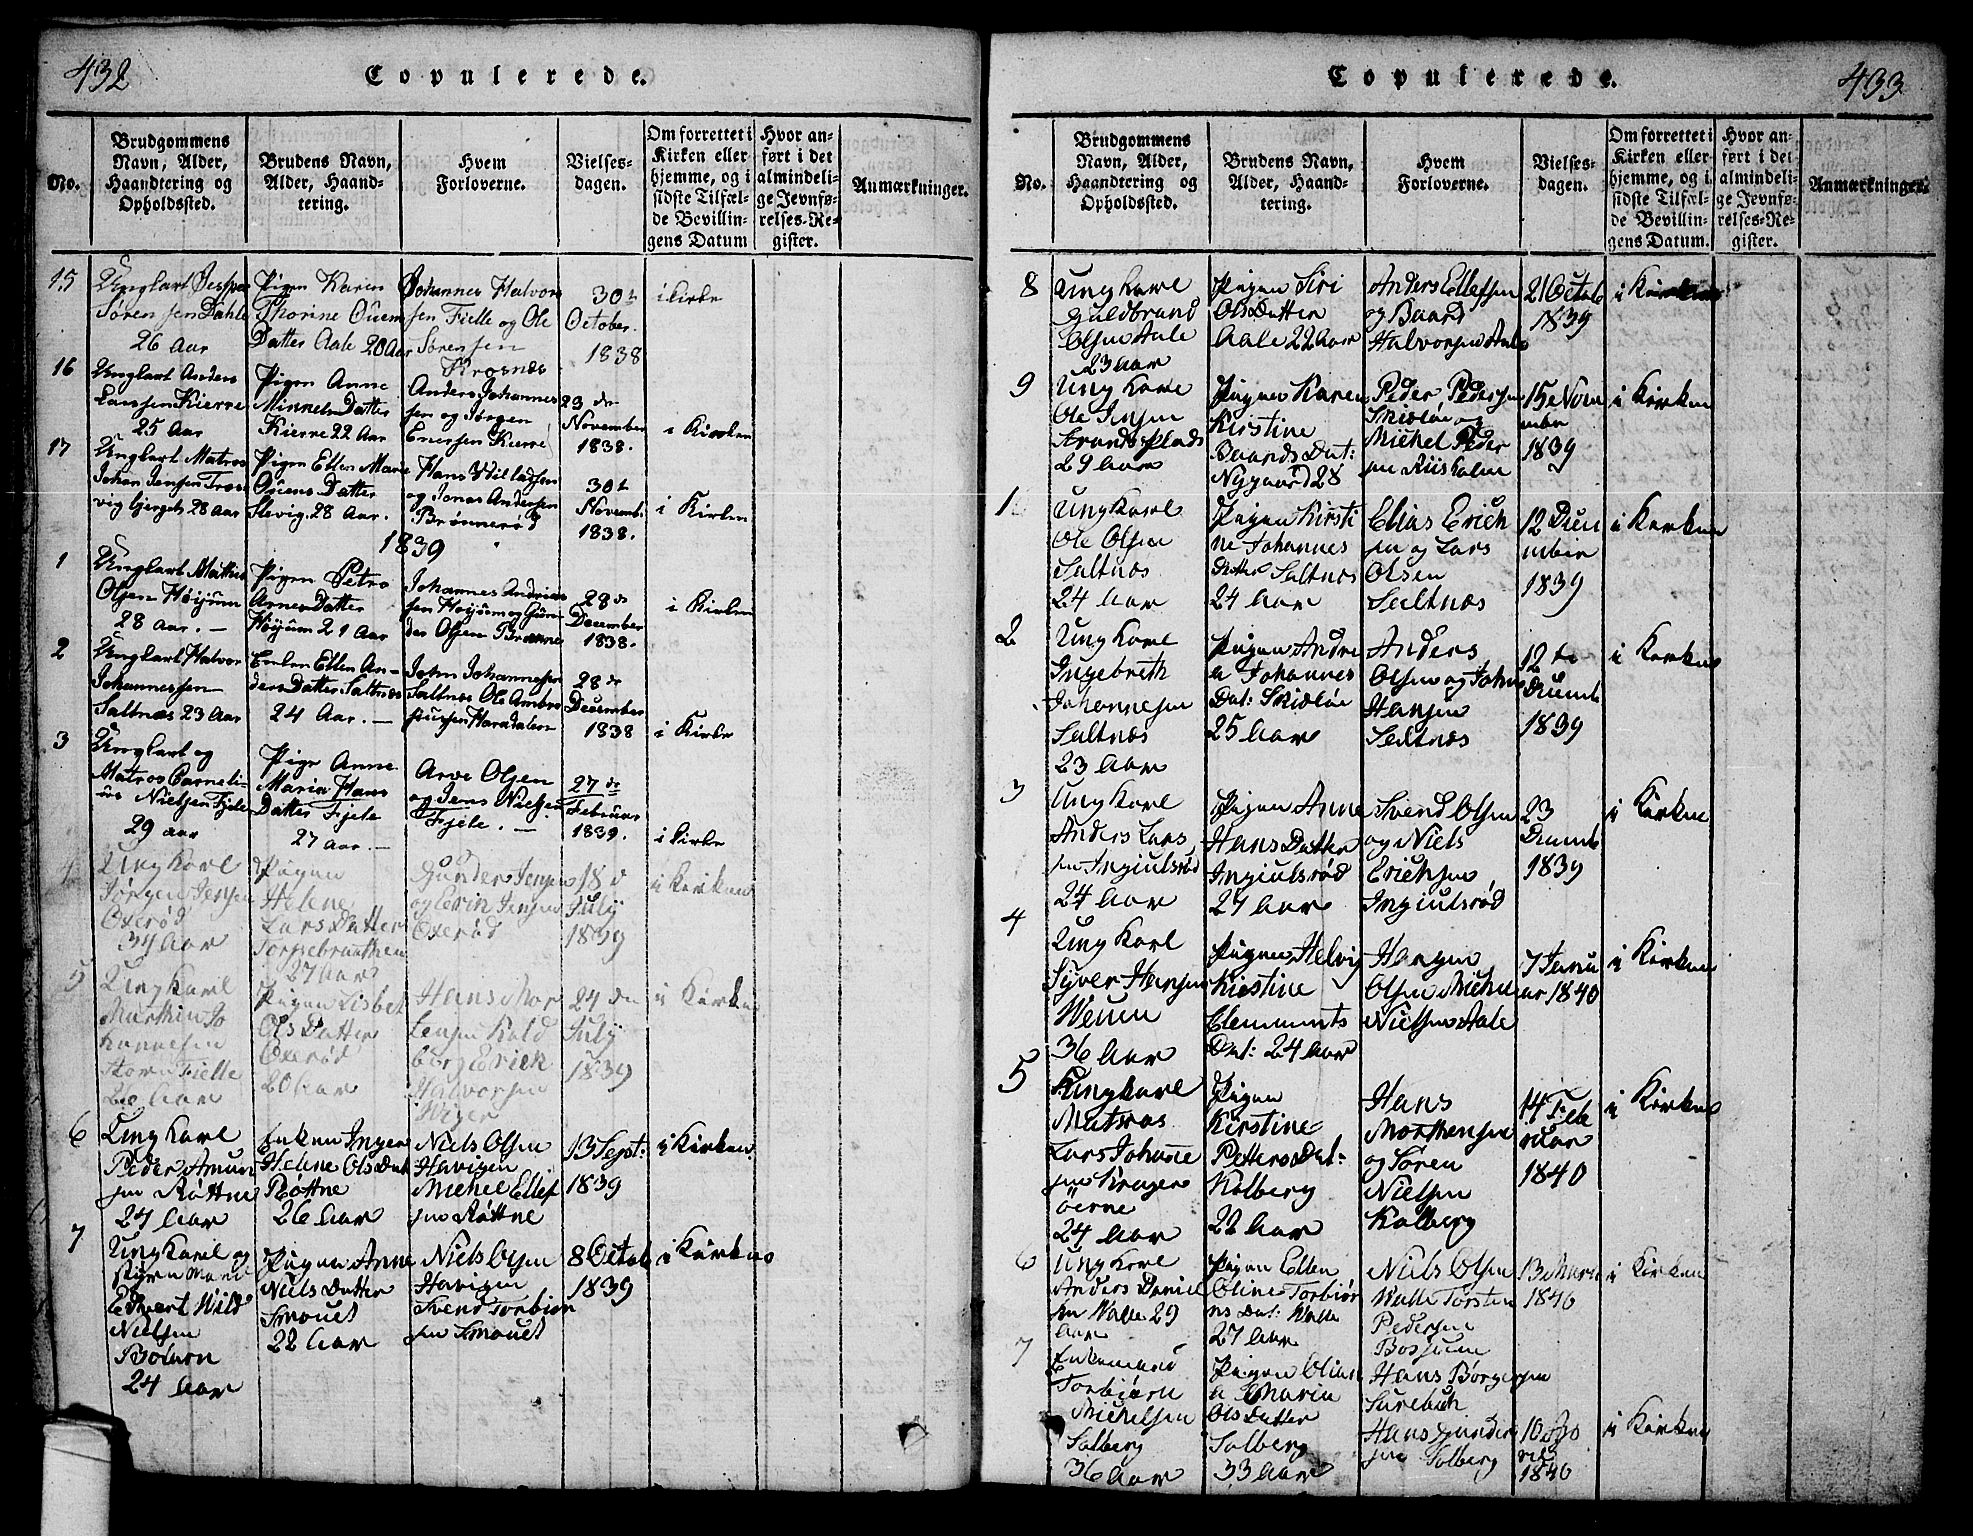 432
Copulerede.
No.
Brudgommens
Navn, Alder,
Haandtering og
Opholdssted.
Brudens Navn,
Alder, Haand-
tering.
Hvem
Forloverne.
Vielses-
dagen.
Om forrettet i
Kirken eller
hjemme, og i
sidste Tilfæl-
de Bevillin-
gens Datum
Hvor an-
ført i det
almindeli-
ge Jevnfø-
relses-Re-
gister.
Anmærkninger.
15
Ungkarl Jesper
Sørensen Dahle
26 Aar
Pigen Karen
Thorine Ouem
Datter Aale 20 Aar
Johannes Halvor
sen Fielle og Ole
Sørensen
Krosnæs
30te
October.
1838
i Kirke
16
Ungkarl Anders
Larssen Kierre
25 Aar
Pigen Anne
Minnels Datter
Kierre 22 Aar
Anders Johannes
sen og Jørgen
Enersen Kierre
23 de
November
1838.
i Kirken
17
Ungkarl Matros
Johan Jensen Tros
vig bjerget 28 Aar
Pigen Ellen Marie
Ouens Datter
Slevig. 28 Aar.
Hans Willadsen
og Jonas Andersen
Brønnerød
30te
Novemb.
1838.
i Kirken
1839
1
Ungkarl Mathis
Olsen Høyum
28 Aar. —
Pigen Petro
Arnes Datter
Høyum 21 Aar
Johannes Andrias
sen Høyum og Gun
der Olsen Brænne
28 de
December
1838.
i Kirken
2
Ungkarl Halvor
Johannessen
Saltnæs 23 Aar
Enken Ellen An-
ders Datter Saltnæs
24 Aar. —
John Johannesen
Saltnæs Ole Ambro
siussen Haradalen
28 de
December
1838
i Kirke
3
Ungkarl og
Matros Corneli-
us Nielsen Fjele
29 Aar
Pige Anne
Maria Hans
Datter Fjele
27 Aar. —
Arve Olsen
og Jens Nielsen
Fjele. —
27 de
Februar
1839.
i Kirke
4
Ung Karl
Jørgen Jensen
Oxerød
34 Aar
Pigen
Helene
Lars Datter
Torpebraathen
27 Aar
Gunder Jensen
og Erik Jensen
Oxerød
18 d
July
1839
i Kirken
5
Ung Karl
Marthin Jo
hannesen
Store Fielle
26 Aar
Pigen Lisbet
Ols Datter
Oxerød
20 Aar
Hans Mor
tensen Kold
berg Erick
Halvorsen
Wiger
24 de
July
1839
i Kirken
6
Ung Karl
Peder Amun
sen Røttne
24 Aar
Enken Inger
Helene Ols Dat
Røttne
26 Aar
Niels Olsen
Havigen
Michel Ellef
sen Røttne
13 Sept:
1839
i Kirken
7
Ung Karl og
Styremand
Edvert Wild
Nielsen
24 Aar
Pigen Anne
Niels Datter
Smouet
22 Aar
Niels Olsen
Havigen
Svend Torbiør
sen Smouet
8 Octob
1839
i Kirken
433
Copulerede.
No.
Brudgommens
Navn, Alder,
Haandtering og
Opholdssted.
Brudens Navn,
Alder, Haand-
tering.
Hvem
Forloverne.
Vielses-
dagen.
Om forrettet i
Kirken eller
hjemme, og i
sidste Tilfæl-
de Bevillin-
gens Datum.
Hvor an-
ført i det
almindeli-
ge Jevnfø-
relses-Re-
gister.
Anmærkninger.
8
Ung Karl
Guldbrand
Olsen Aale
23 Aar
Pigen Siri
Ols Datter
Aale 22 Aar
Anders Ellefsen
og Baard
Halvorsen Aale
21 Octob
1839
i Kirken
9
Ung Karl
Ole Jensen
Strands plads
29 Aar
Pigen Karen
Kirstine
Baards Dat:
Nygaard 28
Peder Pedersen
Skibløe og
Michel Peder
sen Riisholm
15 Novem
ber
1839
i Kirken
1
Ung Karl
Ole Olsen
Saltnæs
24 Aar
Pigen Kirsti
ne Johannes
Datter Saltnæs
24 Aar
Elias Erich
sen og Lars
Olsen
Saltnæs
12 Decem
ber
1839
i Kirken
2
Ung Karl
Ingebreth
Johannesen
Saltnæs
23 Aar
Pigen Andre
a Johannes
Dat: Skibløe
25 Aar
Anders
Olsen og Johns
Hansen
Saltnæs
12 te
Decemb
1839
i Kirken
3
Ung Karl
Anders Lars
sen Ingiulsrød
24 Aar
Pigen Anne
Hans Datter
Ingiulsrød
27 Aar
Svend Olsen
og Niels
Erichsen
Ingiulsrød
23
Decemb
1839
i Kirken
4
Ung Karl
Syver Hansen
36 Aar
Pigen Helvig
Kirstine
Clemments
Dat: 24 Aar
Hansen
Olsen Michel
Nielsen Aale
7 Janu
ar 1840
i Kirken
5
Ung Karl
Matros
Lars Johanne
sen Krager
øerne
24 Aar
Pigen
Kirstine
Petters Dat:
Kolberg
22 Aar
Hans
Morthensen
og Søren
Nielsen
Kolberg
14 Feb
ruar
1840
i Kirken
6
Ung Karl
Anders Daniel
sen Walle 29
Aar
Pigen Ellen
Oline Torbiør
ns Dat: Walle
27 Aar
Niels Olsen
Walle Torsten
Pedersen
Bosjum
13 Marts
1840
i Kirken
7
Enkemand
Torbiørn
Michelsen
Solberg
36 Aar
Pigen Olian
a Maria
Ols Datter
Solberg
33 Aar
Hans Børgersen
Surebuch
Hans Gunder
sen Solberg
10 Ap
ril
1840
i Kirken